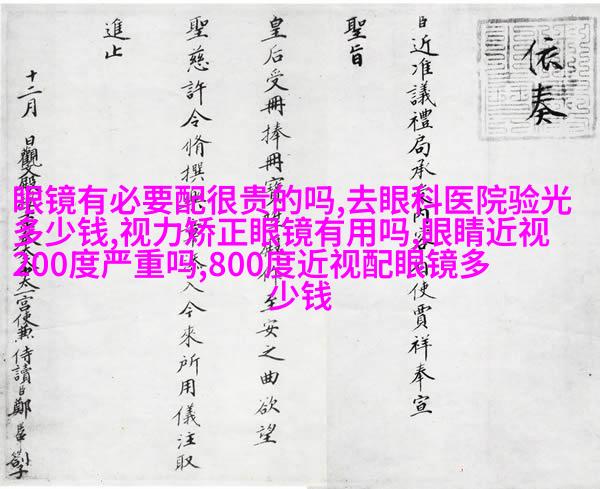 依奏
近准議禮局承内使賈祥奉宣
聖旨
皇后受冊捧冊寶至安之曲欲望
聖慈許令脩撰入今來所用儀注取
進止
十二月 日觀文殿宮使兼侍讀臣鄭
眼镜有必要配很贵的吗,去眼科医院验光
多少钱,视力矫正眼镜有用吗,眼睛近视
200度严重吗,800度近视配眼镜多
少钱